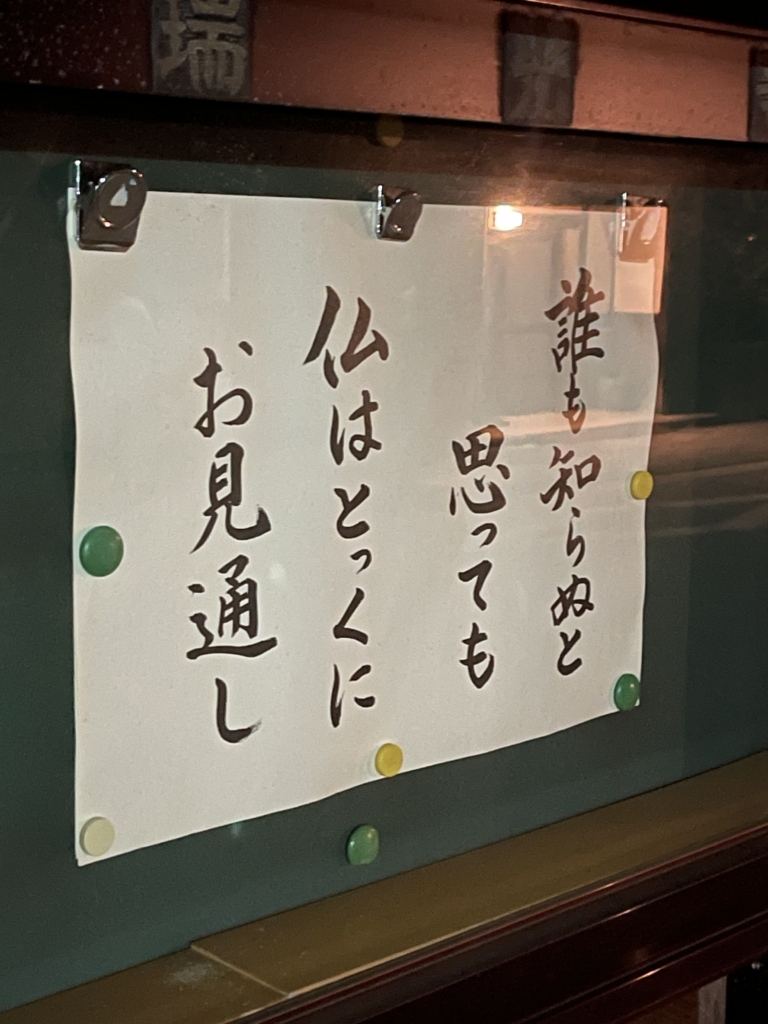 瑞光寺
誰も知らぬと
思っても
仏はとっくに
お見通し